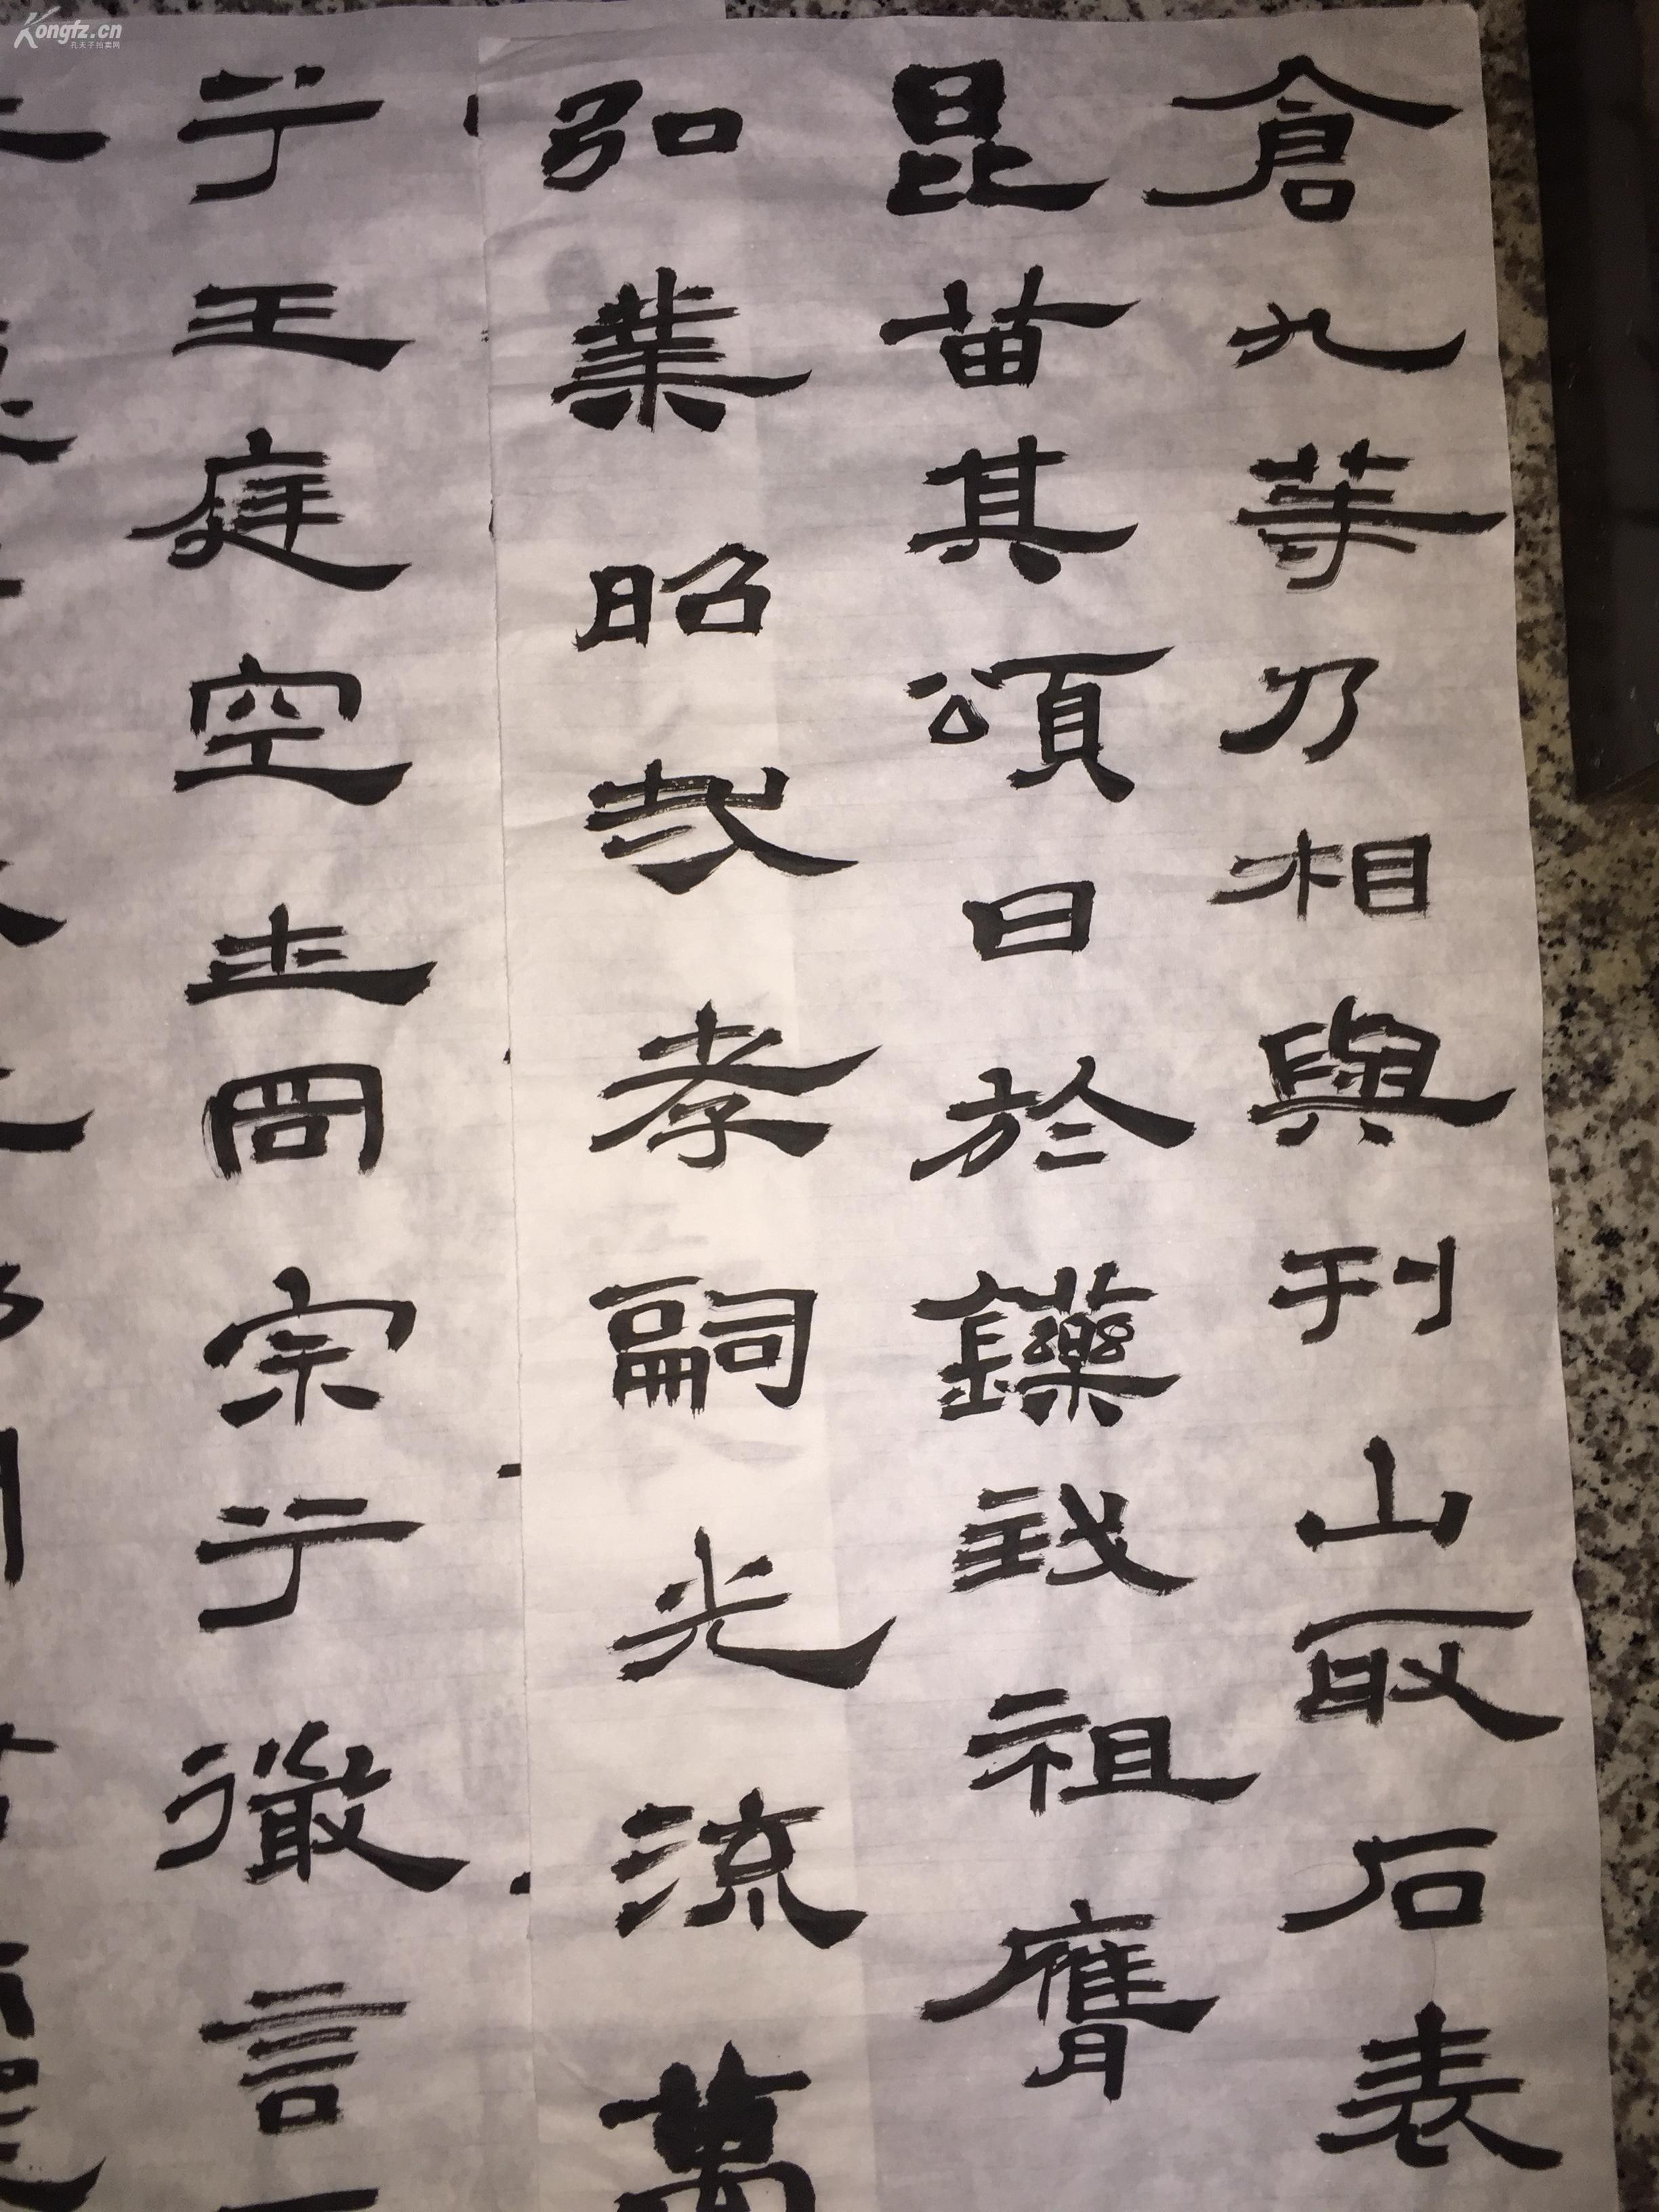 倉九等乃相與刊山取石表
昆苗其頌曰於鑠我祖膺
弘業昭哉孝嗣光流萬
于王庭空罔宗于言
Kongfz.cn
孔夫子拍卖网